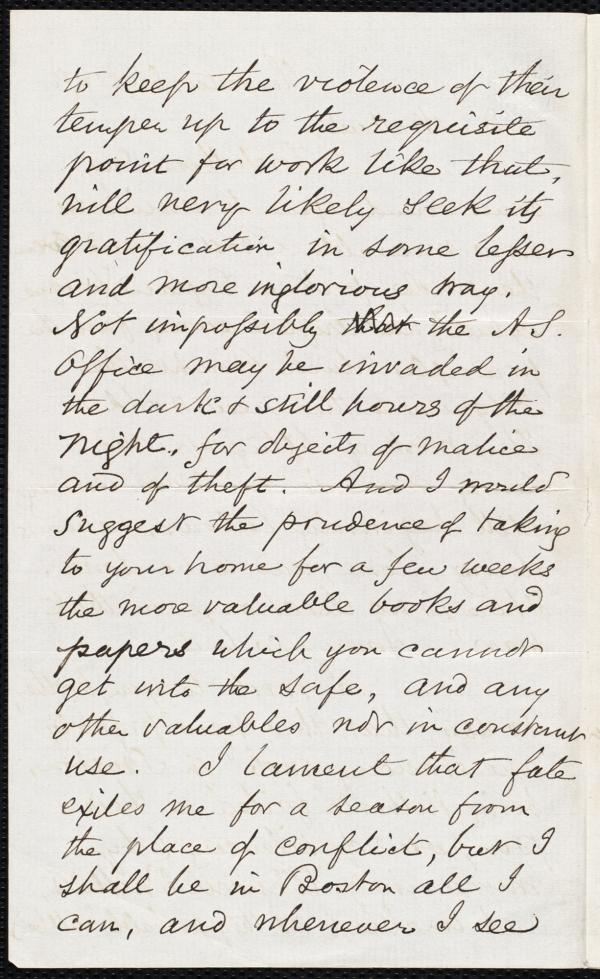 to keep the violence of their
temper up to the requisite
point for work like that,
will very likely seek its
gratification in some lesser
and more inglorious way.
Not impossibly the A.S.
Office may be invaded in
the dark & still hours of the
night, for objects of malice
and of theft. And I would
suggest the prudence of taking
to your home for a few weeks
the more valuable books and
papers which you cannot
get into the safe, and any
other valuables not in constant
use. I lament that fate
exiles me for a season from
the place of conflict, but I
shall be in Boston all I
can, and whenever I see